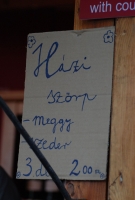 with cou
Házi
szörp
- meggy
- szeder
3 dl 200